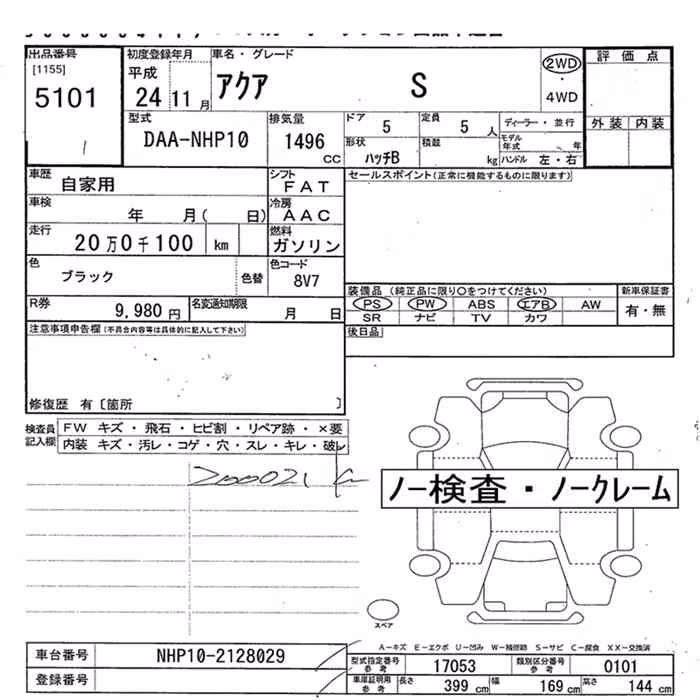 出品番号
[1155]
5101
初度登録年月
平成
24 11 月
車名・グレード
アクア S
2WD
・
4WD
評価点
外装 内装
型式
DAA-NHP10
排気量
1496
CC
ドア
5
定員
5 人
ディーラー・並行
形状
ハッチB
積載
kg
モデル
年式 年
ハンドル 左・右
車歴
自家用
シフト
FAT
セールスポイント(正常に機能するものに限ります)
車検
年 月( 日)
冷房
AAC
走行
20万0千100 km
燃料
ガソリン
色
ブラック
色替
色コード
8V7
装備品 (純正品に限り○をつけてください)
新車保証書
PS PW ABS エアB AW
有・無
SR ナビ TV カワ
R券
9,980 円
名変通知期限
月 日
後日品
注意事項申告欄(不具合内容等は具体的に記入して下さい)
修復歴 有〔箇所 〕
検査員
記入欄
FW キズ・飛石・ヒビ割・リペア跡・×要
内装 キズ・汚レ・コゲ・穴・スレ・キレ・破レ
200021
ノー検査・ノークレーム
スペア
A―キズ E―エクボ U―凹み W―補修跡 S―サビ C―腐食 XX―交換済
車台番号 NHP10-2128029
登録番号
型式指定番号
参考
17053
類別区分番号
参考
0101
車庫証明用
参考
長さ 399 cm 幅 169 cm 高さ 144 cm